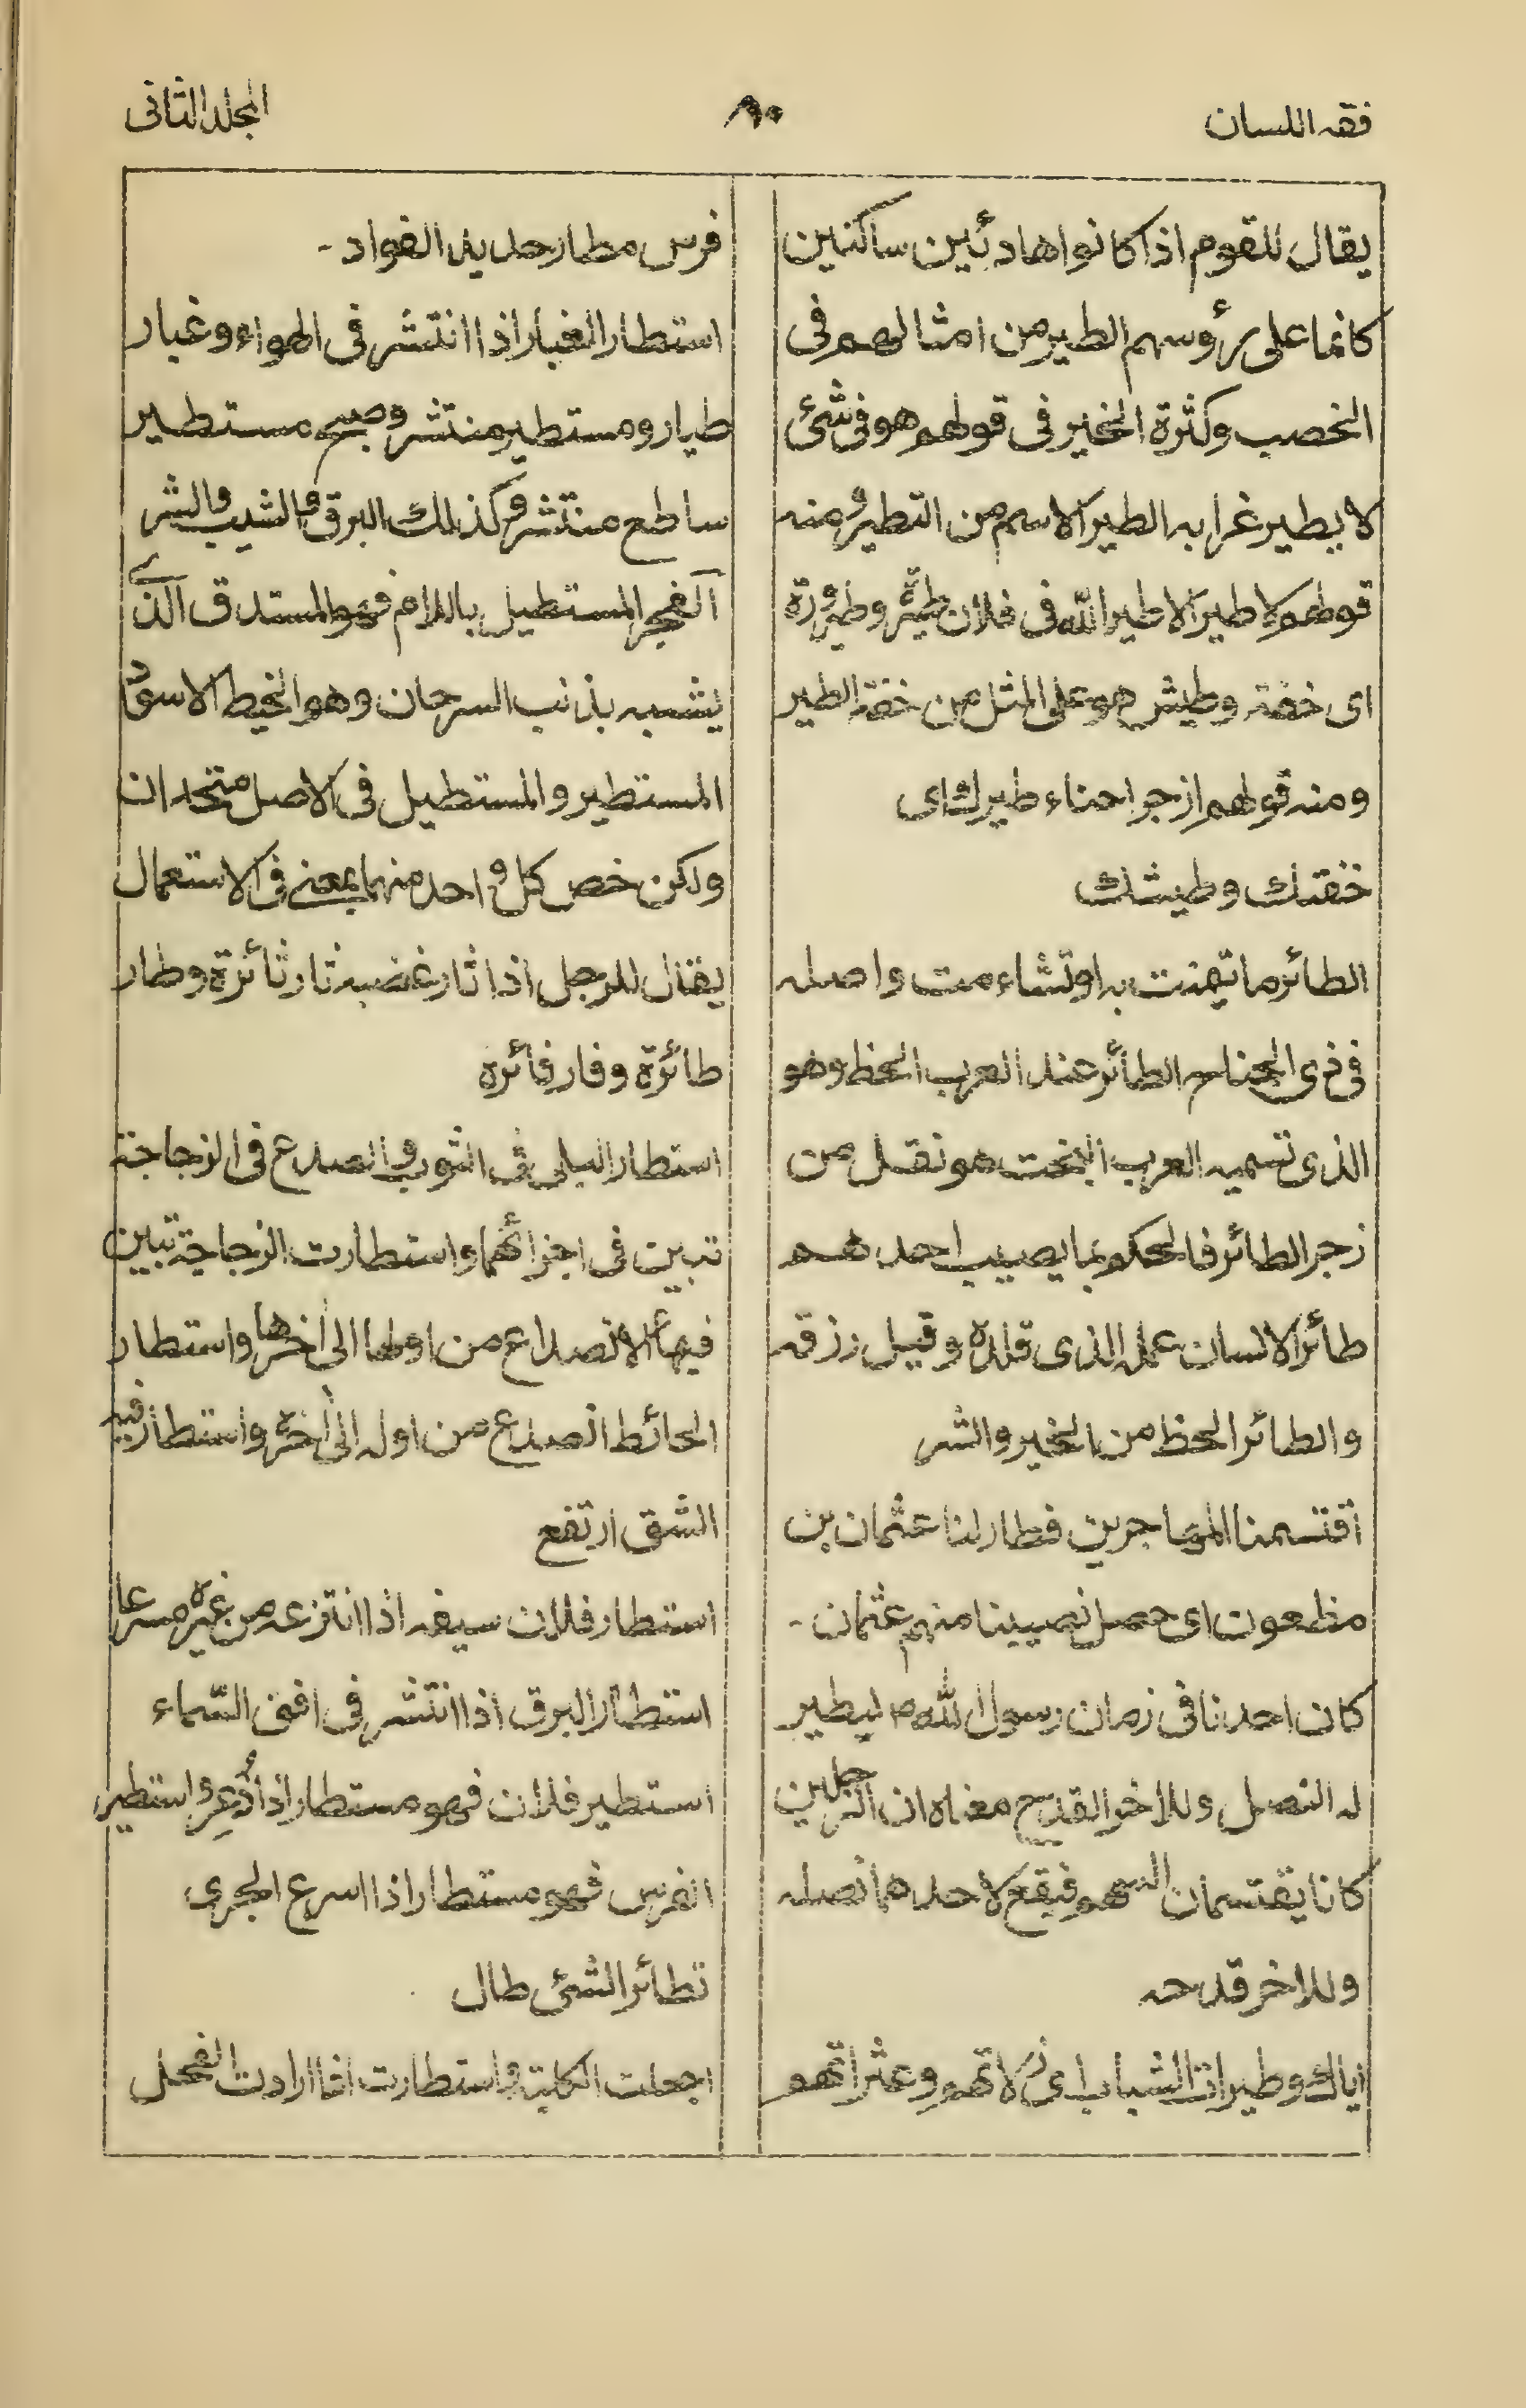 فقه اللسان
٩٠
المجلد الثانی
يقال للقوم اذا كانوا هادئين ساكنين
كانما على رؤسهم الطير من امثالهم فى
الخصب وكثرة الخير فى قولهم هو فى شئ
لا يطير غرابه الطير الاسم من التطير ومنه
قولهم لا طير الا طير الله فى فلان طيرة وطيرورة
اى خفة وطيش هو على المثل من خفة الطير
ومنه قولهم ازجر احناء طيرك اى
خفتك وطيشك
الطائر ما تيمنت به او تشاءمت واصله
فى ذى الجناح الطائر عند العرب الحظ وهو
الذى تسميه العرب البخت هو نقل من
زجر الطائر فالحكم بما يصيب احدهم
طائر الانسان عمله الذى قلده وقيل رزقه
والطائر الحظ من الخير والشر
اقتسمنا المهاجرين فطار لنا عثمان بن
مظعون اى حصل نصيبنا منهم عثمان -
كان احدنا فى زمان رسول الله ص ليطير
له النصل وللاخر القدح معناه ان الرجلين
كانا يقتسمان السهم فيقع لاحدهما نصله
وللاخر قدحه
اياك وطيرات الشباب اى زلاتهم وعثراتهم
فرس مطار حديد الفواد -
استطار الغبار اذا انتشر فى الهواء وغبار
طيار ومستطير منتشر وصبح مستطير
ساطع منتشر وكذلك البرق والشيب والشر
الفجر المستطيل باللام فهو المستدق الذے
يشبه بذنب السرحان وهو الخيط الاسود
المستطير والمستطيل فى الاصل متحدان
ولكن خص كل واحد منهما بمعنے فى الاستعمال
يقال للرجل اذا ثار غضبه ثار ثائرة وطار
طائرة وفار فائرة
استطار البلى فى الثوب والصدع فى الزجاجة
تبين فى اجزائهما واستطارت الزجاجة تبين
فيها الانصداع من اولها الى آخرها واستطار
الحائط انصدع من اوله الى آخره واستطار فيه
الشق ارتفع
استطار فلان سيفه اذا انتزعه من غمده مسرعا
استطار البرق اذا انتشر فى افق السّماء
استطير فلان فهو مستطار اذا ذُعِر واستطير
الفرس فهو مستطار اذا اسرع الجرى
تطائر الشئ طال
اجعلت الكلبة واستطارت اذا ارادت الفحل